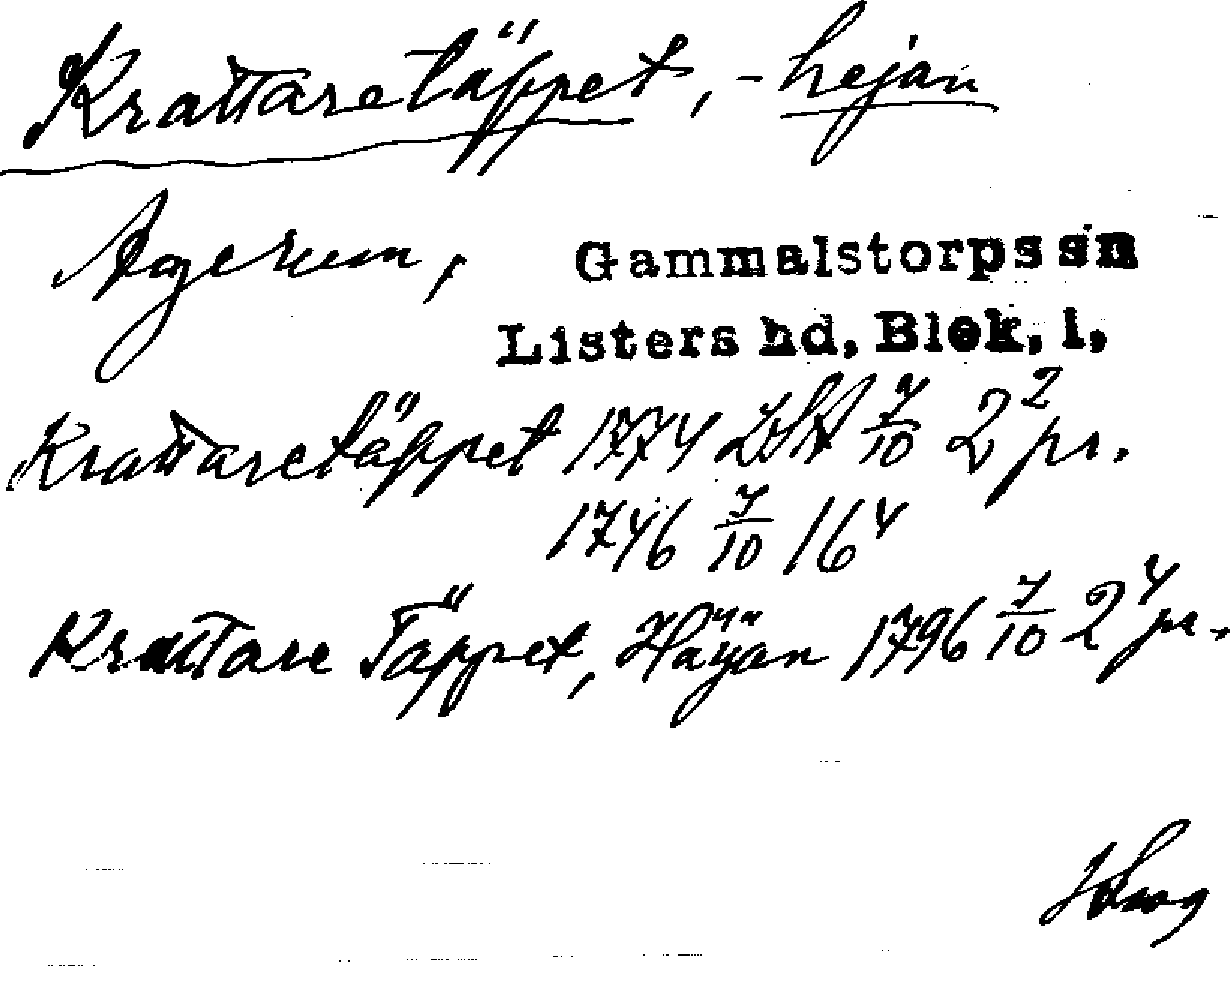 Krattaretäppet, -hejan
Agerum, Gammalstorps sn
Listers hd, Blek. l,
Krattaretäppet 1774 LSA 7/10 2² pr.
1746 7/10 16⁴
Krattare Täppet, Häÿan 1796 7/10 2⁴ pr.